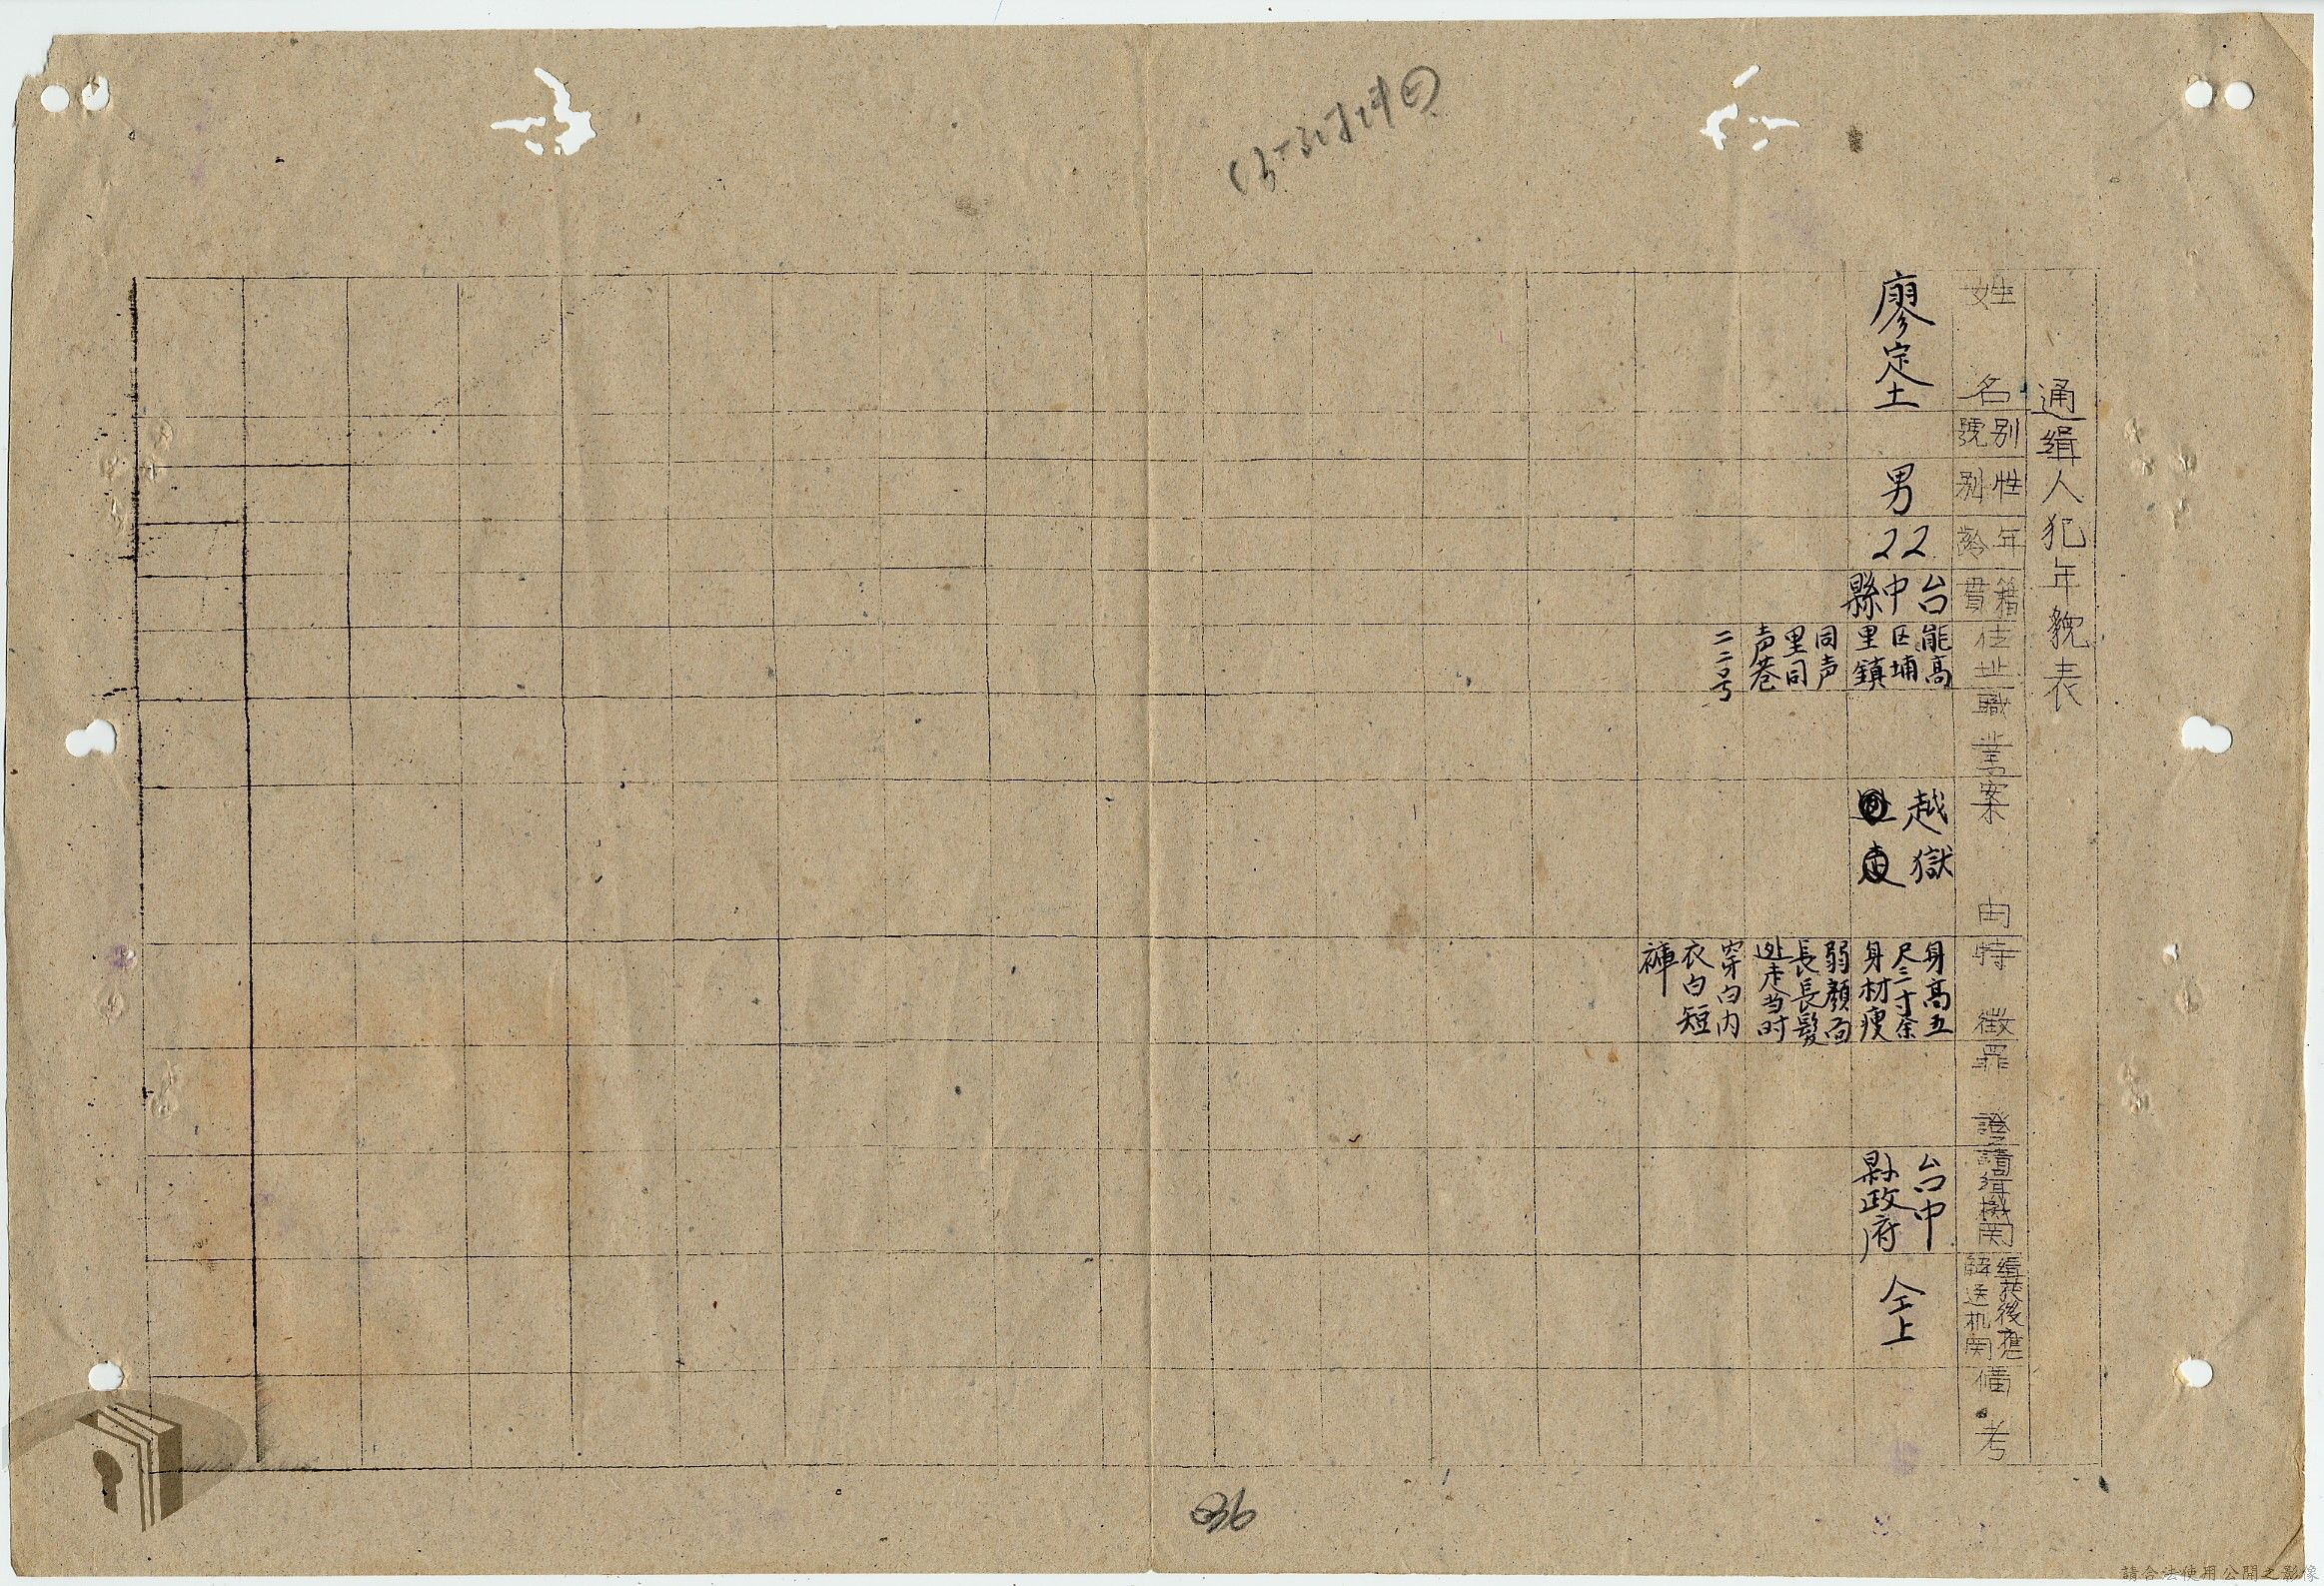 通緝人犯年貌表
姓名
別號
性別
年齡
籍貫
住址
職業
案由
特徵
罪證
請緝機関
緝获後應
解送机関
備考
廖定土
男
22
台中縣
能高
区埔
里鎮
同声
里同
声巷
二二号
越獄
身高五
尺三寸余
身材瘦
弱顏面
長長髮
逃走当时
穿白内
衣白短
褲
台中
縣政府
仝上
036
請合法使用公開之影像